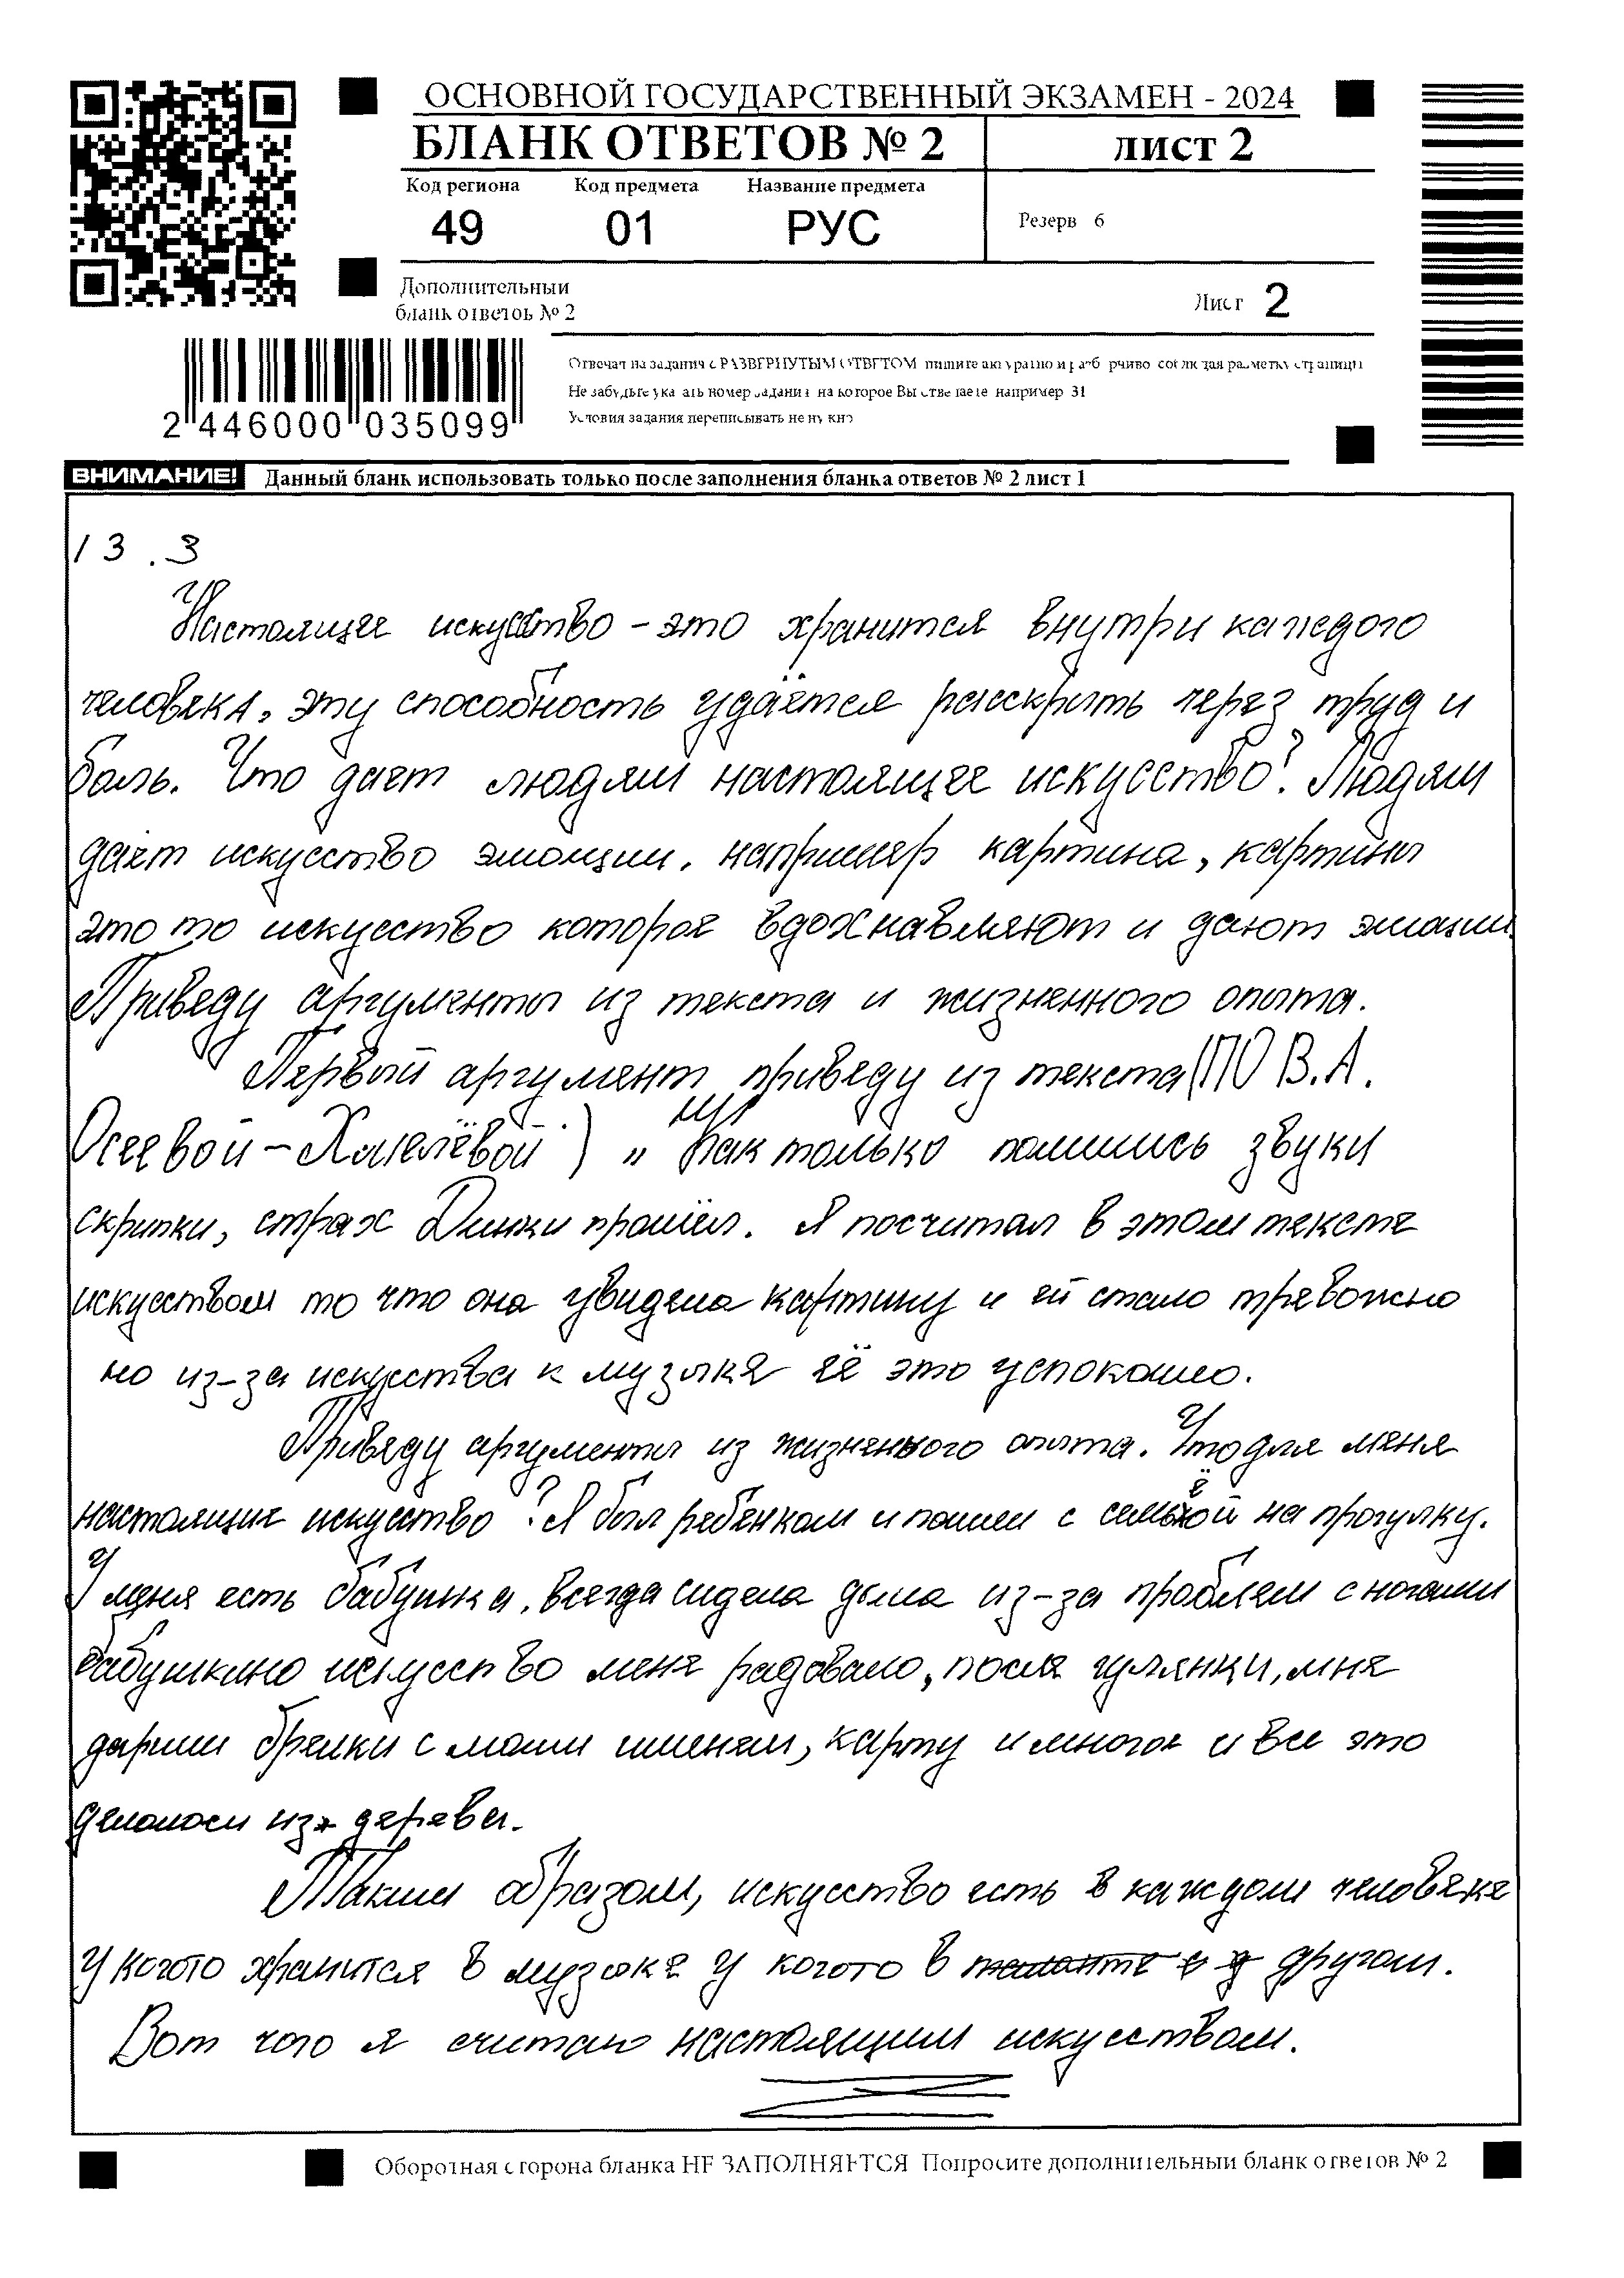 ОСНОВНОЙ ГОСУДАРСТВЕННЫЙ ЭКЗАМЕН - 2024
БЛАНК ОТВЕТОВ № 2
ЛИСТ 2
Код региона Код предмета Название предмета
49 01 РУС
Резерв 6
Дополнительный
бланк ответов № 2
Лист 2
Отвечая на задания с РАЗВЕРНУТЫМ ОТВЕТОМ пишите аккуратно и разборчиво соблюдая разметку страницы
Не забудьте указать номер задания на которое Вы отвечаете например 31
Условия задания переписывать не нужно
2 446000 035099
ВНИМАНИЕ! Данный бланк использовать только после заполнения бланка ответов № 2 лист 1
13.3
Настоящее искусство - это хранится внутри каждого
человека, эту способность удаётся расскрыть через труд и
боль. Что дает людям настоящее искусство? Людям
даёт искусство эмоции. например картина, картины
это то искусство которое вдохнавляют и дают эмоции.
Приведу аргументы из текста и жизненного опыта.
Первый аргумент приведу из текста (ПО В.А.
Осеевой-Хмелёвой) " Как только полились звуки
скрипки, страх Динки прошёл. Я посчитал в этом тексте
искусством то что она увидела картину и ей стало тревожно
но из-за искусства к музыке её это успокоило.
Приведу аргументы из жизненного опыта. Что для меня
настоящие искусство? Я был ребёнком и пошел с семьёй на прогулку.
У меня есть бабушка, всегда сидела дома из-за проблем с ногами
бабушкино искусство меня радовало, после гулянки, мне
дарили брелки с моим именем, карту и многое и все это
делолоси из дерева.
Таким образом, искусство есть в каждом человеке
У когото хранится в музыке у когото в таланте в д другом.
Вот чего я считаю настоящим искусством.
Оборотная сторона бланка НЕ ЗАПОЛНЯЕТСЯ Попросите дополнительный бланк ответов № 2